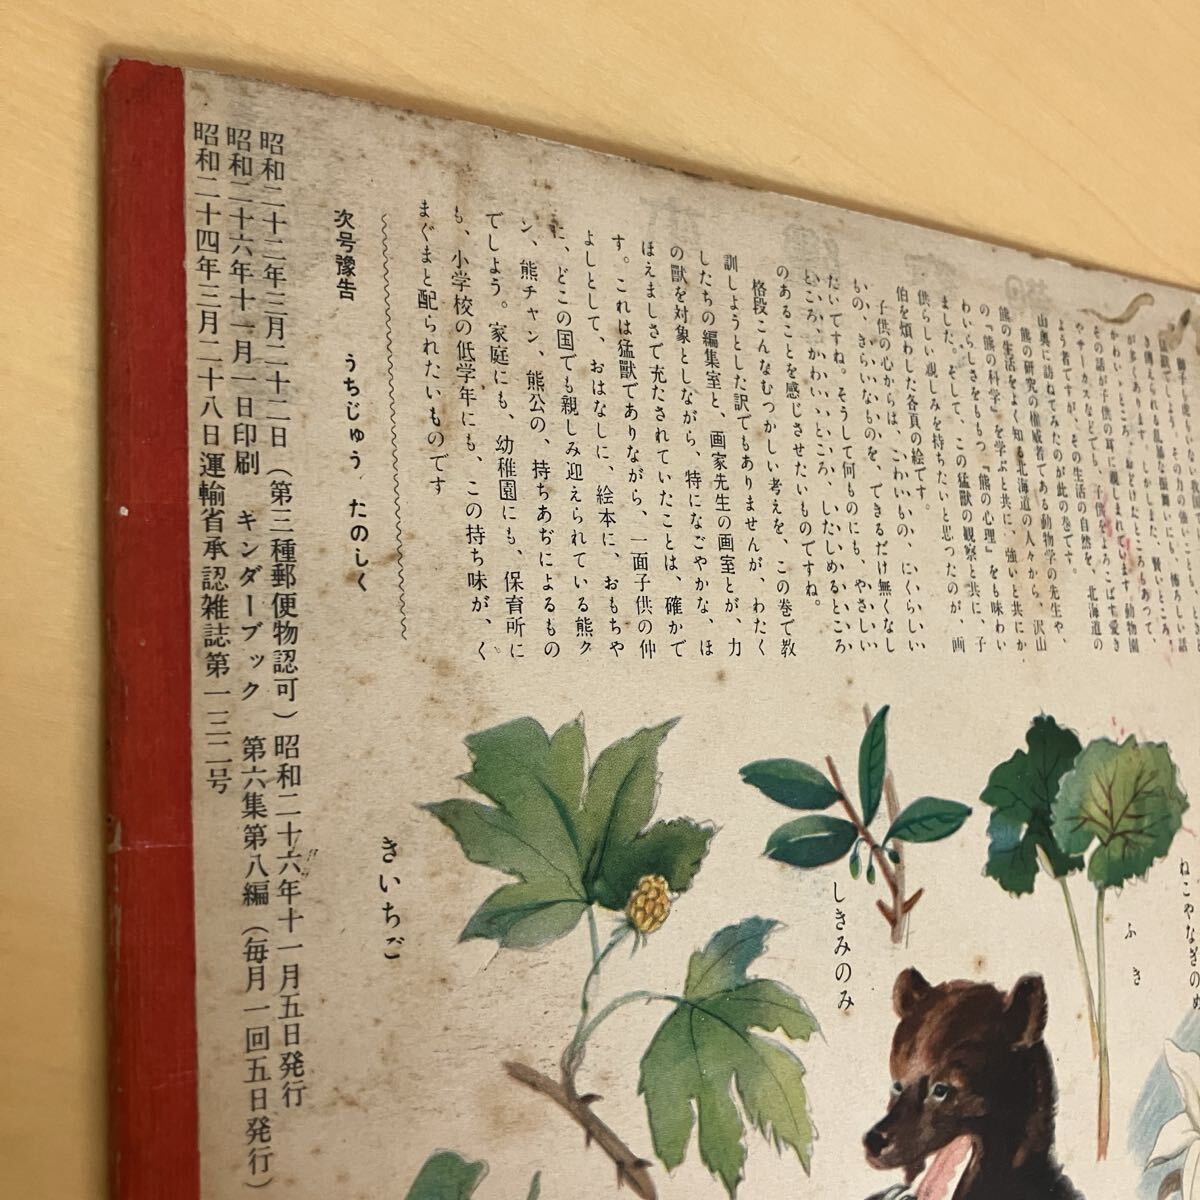 が多くあります。しかしまた、賢いところ、
かわいいところ、おどけたところもあって、
その話が子供の耳に親しまれています。動物園
やサーカスなどでも、子供をよろこばす愛き
ょう者ですが、その生活の自然を、北海道の
山奥に訪ねてみたのが此の巻です。
熊の研究の権威者である動物学の先生や、
熊の生活をよく知る北海道の人々から、沢山
の『熊の科学』を学ぶと共に、強いと共にか
わいらしさをももつ『熊の心理』をも味わい
ました。そして、この猛獣の観察と共に、子
供らしい親しみを持ちたいと思つたのが、画
伯を煩わした各頁の絵です。
子供の心からは、こわいもの、にくらしい
もの、きらいなものを、できるだけ無くなし
たいですね。そうして何ものにも、やさしい
ところ、かわいいところ、いたしめるところ
のあることを感じさせたいものですね。
格段こんなむつかしい考えを、この巻で教
訓しようとした訳でもありませんが、わたく
したちの編集室と、画家先生の画室とが、力
の獣を対象としながら、特になごやかな、ほ
ほえましさで充たされていたことは、確かで
す。これは猛獣でありながら、一面子供の仲
よしとして、おはなしに、絵本に、おもちゃ
に、どこの国でも親しみ迎えられている熊ク
ン、熊チャン、熊公の、持ちあぢによるもの
でしよう。家庭にも、幼稚園にも、保育所に
も、小学校の低学年にも、この持ち味が、く
まぐまと配られたいものです
次号豫告 うちじゅう たのしく
昭和二十二年三月二十二日(第三種郵便物認可)昭和二十六年十一月五日発行
昭和二十六年十一月一日印刷 キンダーブック 第六集第八編(毎月一回五日発行)
昭和二十四年三月二十八日運輸省承認雑誌第一三二号
ねこやなぎのめ
ふき
しきみのみ
きいちご